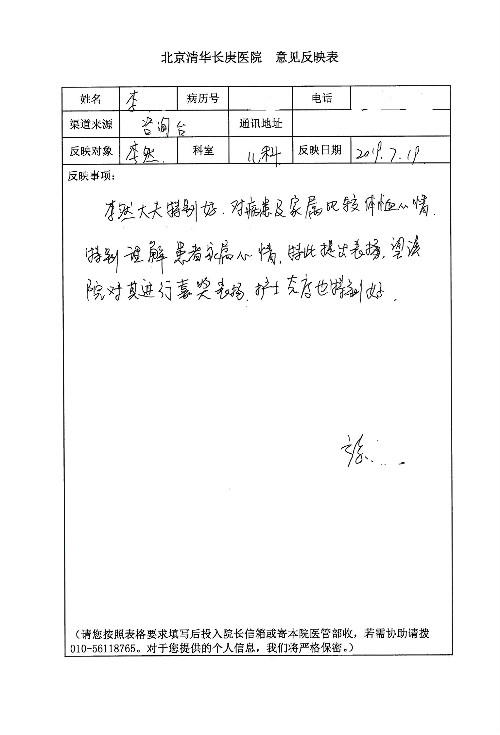 北京清华长庚医院 意见反映表
姓名 李 病历号 电话
渠道来源 咨询台 通讯地址
反映对象 李然 科室 儿科 反映日期 2019.7.19.
反映事项:
李然大夫特别好.对病患及家属比较体恤心情.
特别理解患者就病心情,特此提出表扬,望该
院对其进行嘉奖表扬.护士态度也特别好.
(请您按照表格要求填写后投入院长信箱或寄本院医管部收,若需协助请拨
010-56118765。对于您提供的个人信息,我们将严格保密。)